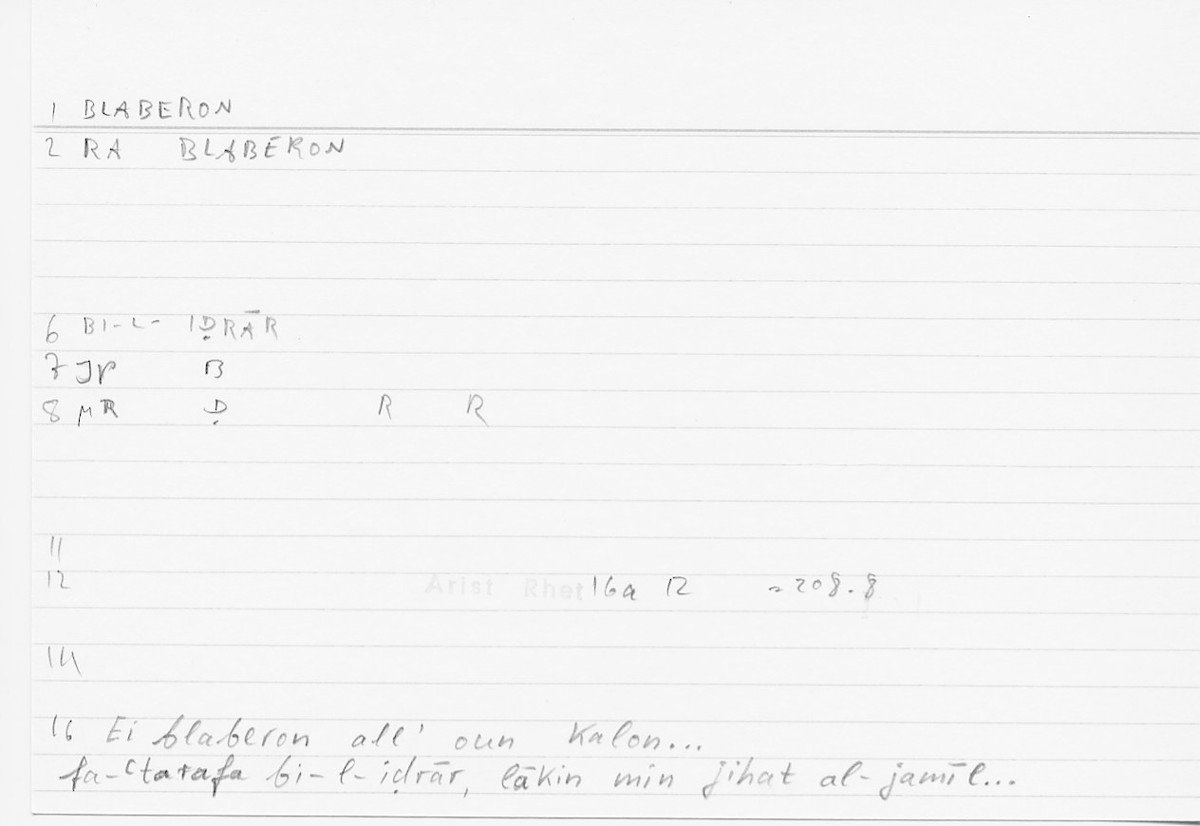 1 BLABERON
2 RA BLABERON
6 BI-L- IḌRĀR
7 JP B
8 MR Ḍ R R
11
12 Arist Rhet 16a 12 = 208.8
14
16 Ei blaberon all' oun kalon...
fa-ʿtarafa bi-l-iḍrār, lākin min jihat al-jamīl...